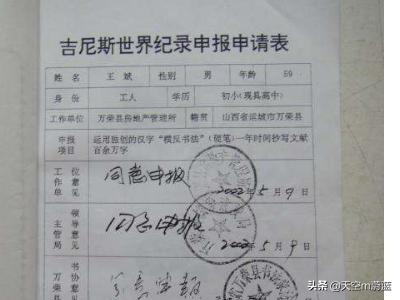 吉尼斯世界纪录申报申请表
姓名 王斌 性别 男 年龄 59
身份 工人 学历 初小(现具高中)
工作单位 万荣县房地产管理所 籍贯 山西省运城市万荣县
申报项目 运用独创的汉字“横反书法”(硬笔)一年时间抄写文献
百余万字
工作单位意见 同意申报
2002年5月9日
主管局领导意见 同意申报
2002年5月9日
万
书协意
头条 @天空m蔚蓝